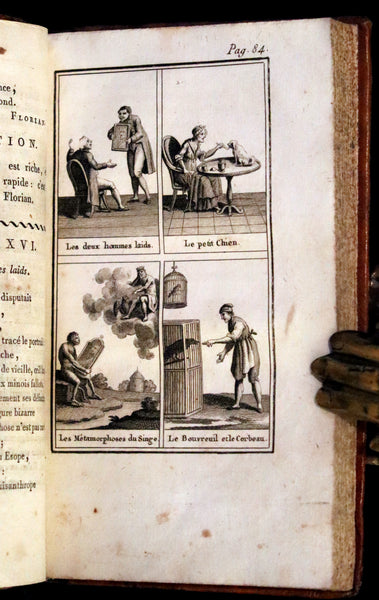 nce;
ond.
FLORIAN
TION.
est riche, e
rapide: c'es
Florian.
XVI.
es laids.
disputait
,
tracé le portrai
che,
de vieille, œil
x minois
ement ses
gure bizarre
hose n'est pas
;
u Esope;
:
isanthrope
Pag. 84.
Les deux hommes laids.
Le petit Chien.
Les Métamorphoses du Singe.
Le Bouvreuil et le Corbeau.